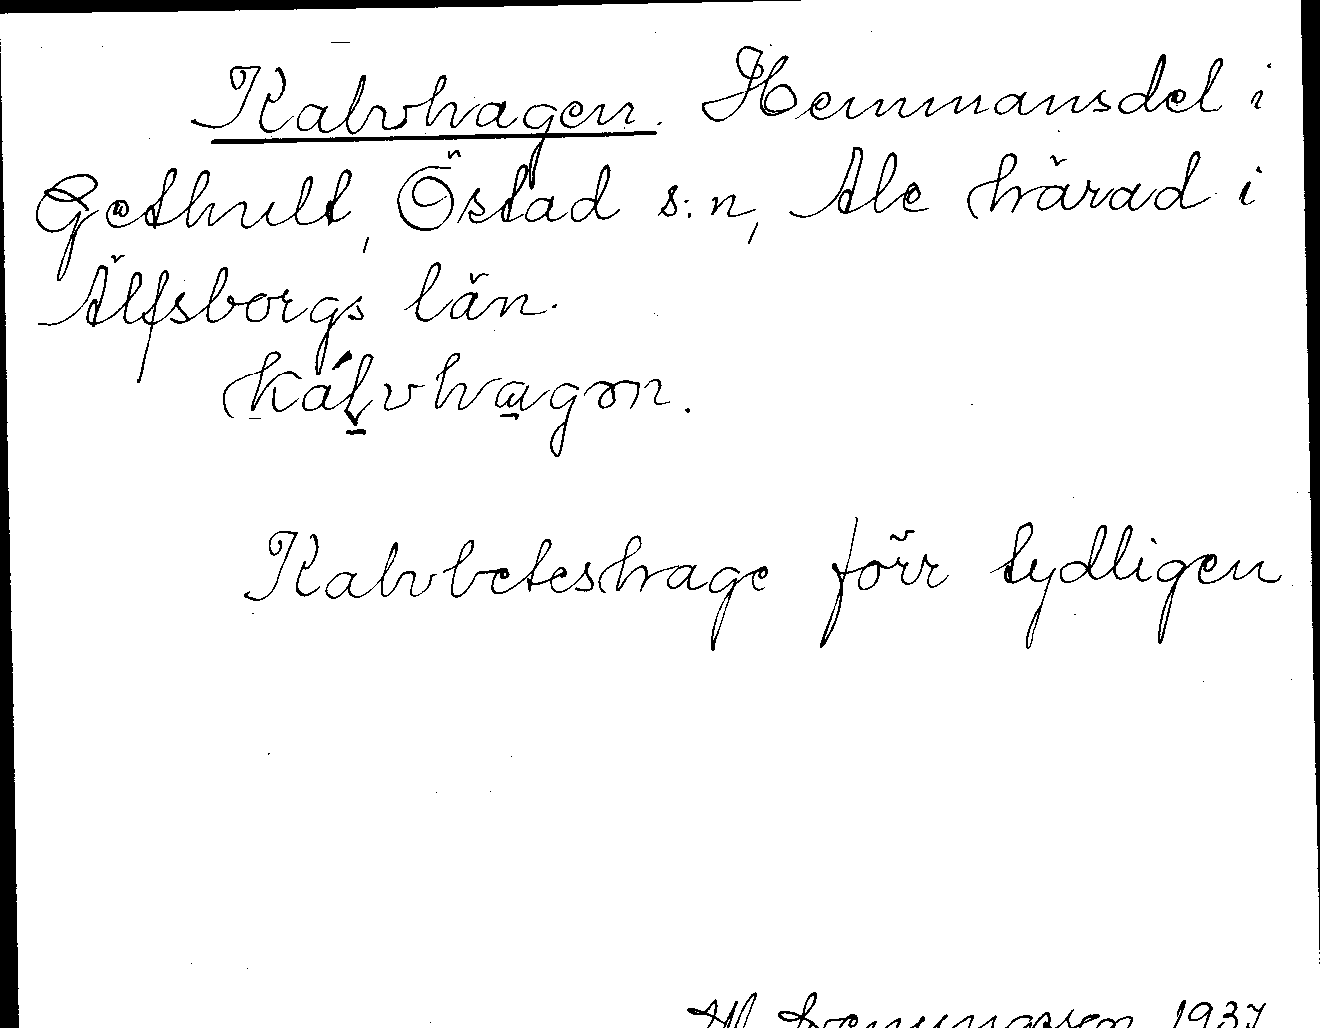 Kalvhagen. Hemmansdel i
Gethult, Östad s:n, Ale härad i
Älfsborgs län.
kálvhagən.
Kalvbeteshage förr tydligen
1937